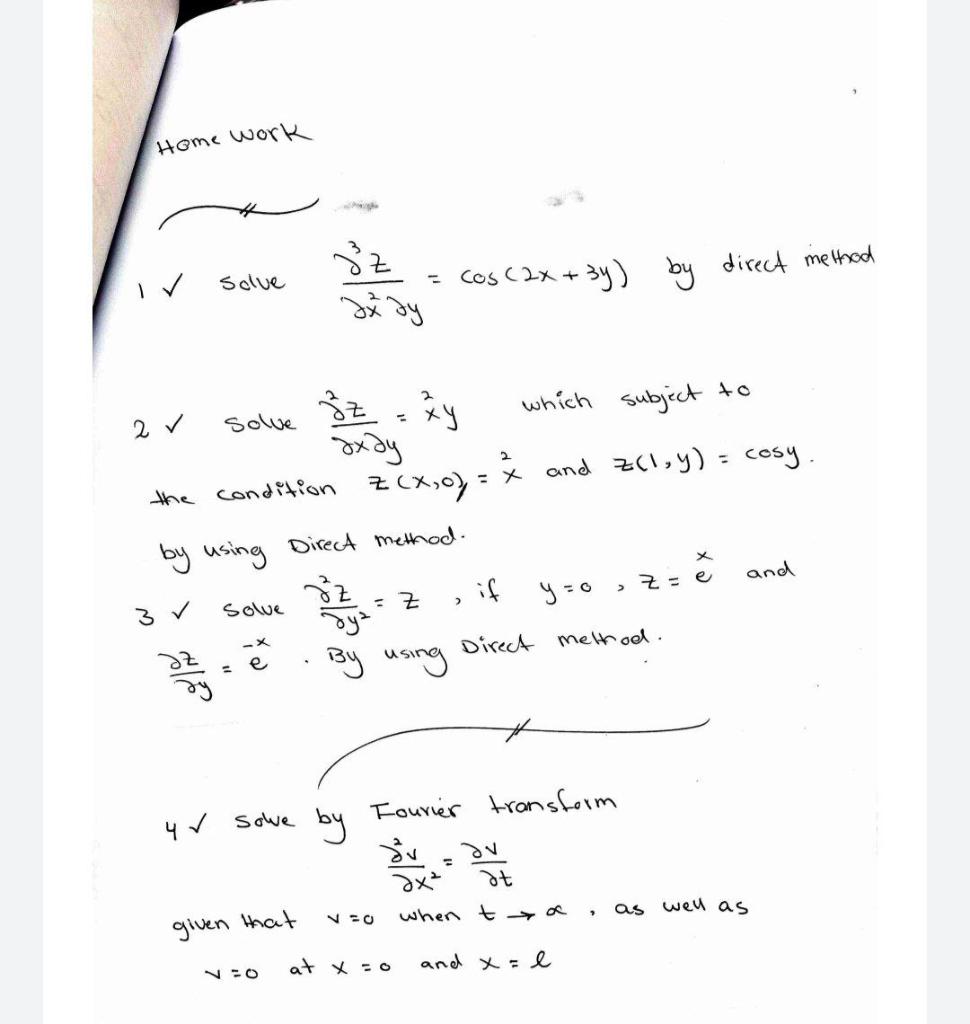 Home Work
1 ✓ Solve ∂³z/∂x²∂y = cos(2x + 3y) by direct method
2 ✓ Solve ∂²z/∂x∂y = x²y which subject to
the condition z(x,0) = x² and z(1,y) = cosy.
by using Direct method.
3 ✓ Solve ∂²z/∂y² = z , if y=0 , z = eˣ and
∂z/∂y = e⁻ˣ . By using Direct method.
4 ✓ Solve by Fourier transform
∂²v/∂x² = ∂v/∂t
given that v=0 when t → ∝ , as well as
v=0 at x=0 and x=l